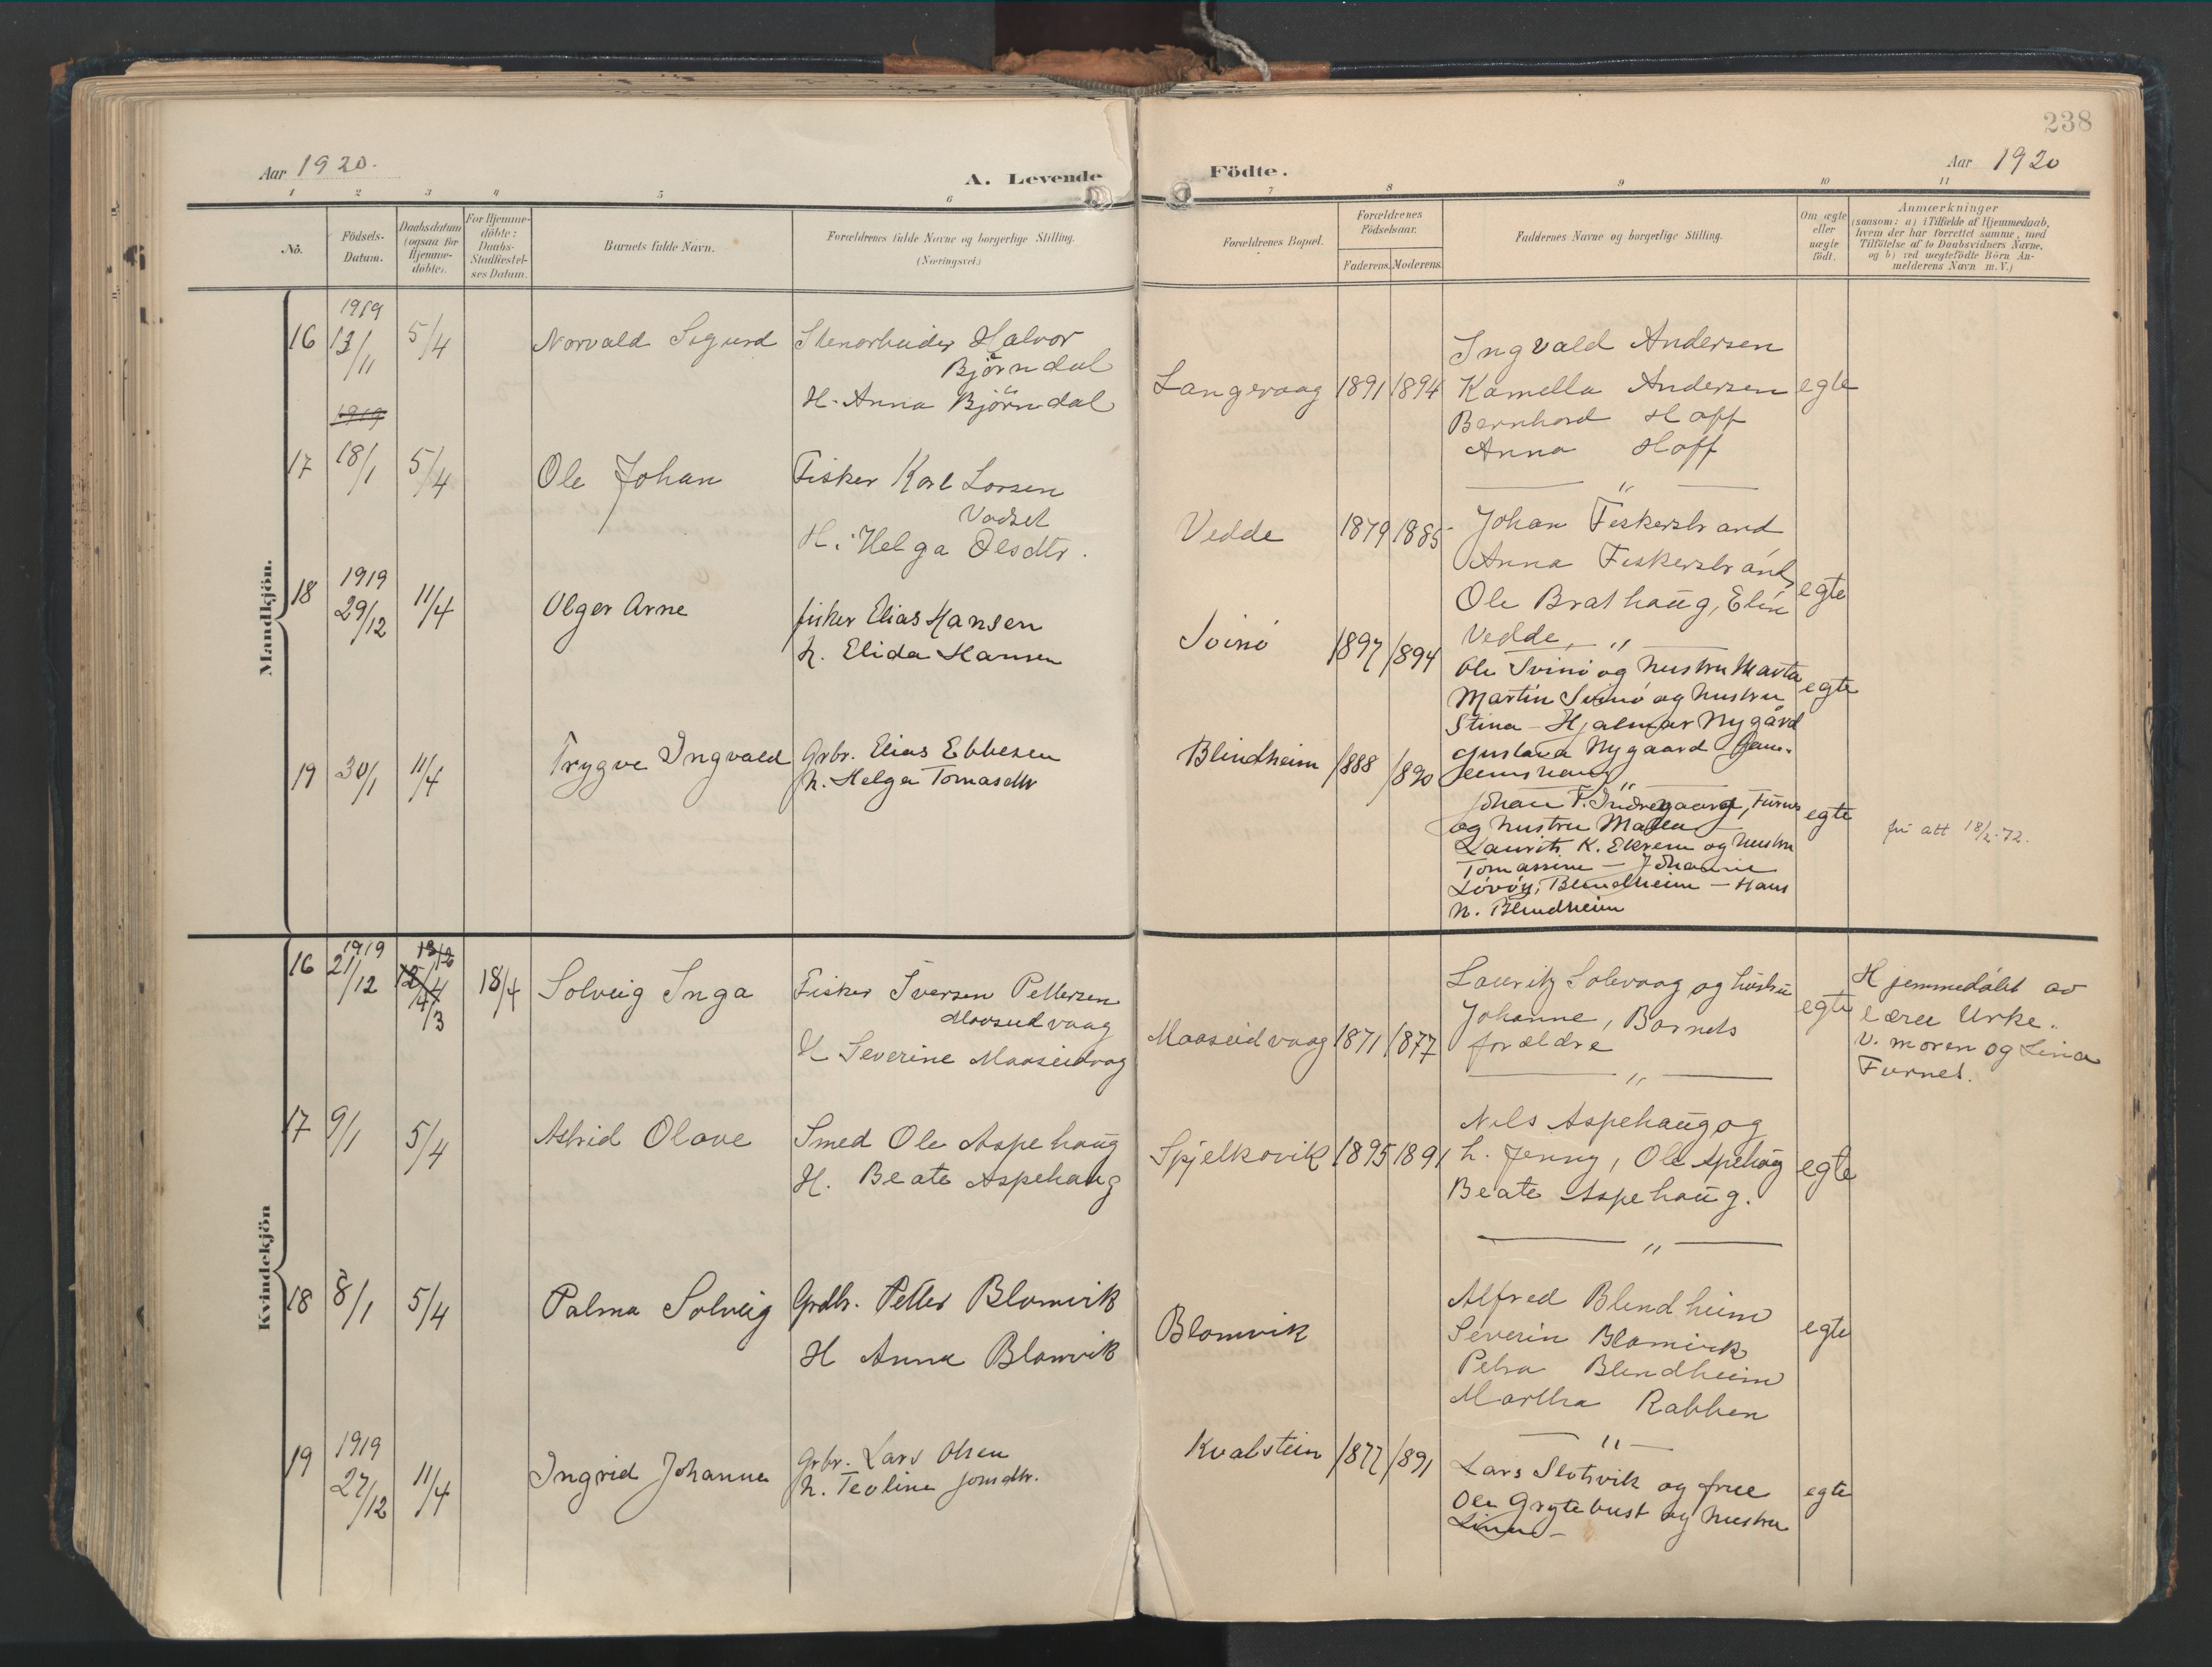 238
Aar 1920.
A. Levende Födte.
Aar 1920
1 2 3 4 5 6 7 8 9 10 11
Nö.
Födsels-
Datum.
Daabsdatum
(ogsaa for
Hjemme-
döbte).
For Hjemme-
döbte:
Daabs-
Stadfæstel-
ses Datum.
Barnets fulde Navn.
Forældrenes fulde Navne og borgerlige Stilling.
(Næringsvei.)
Forældrenes Bopæl.
Forældrenes
Födselsaar.
Faderens. Moderens.
Faddernes Navne og borgerlige Stilling.
Om ægte
eller
uægte
födt.
Anmærkninger
(saasom: a) i Tilfælde af Hjemmedaab,
hvem der har forrettet samme, med
Tilföielse af to Daabsvidners Navne,
og b) ved uægtefödte Börn An-
melderens Navn m. V.)
Mandkjön.
16
1919
13/11
5/4
Norvald Sigurd
Stenarbeider Halvor
Björndal
H. Anna Björndal
Langevaag
1891
1894
Ingvald Andersen
Kamella Andersen
Bernhard Hoff
Anna Hoff
— " —
egte
1919
17
18/1
5/4
Ole Johan
Fisker Karl Larsen
Vadset
H. Helga Olsdtr.
Vedde
1879
1885
Johan Fiskerstrand
Anna Fiskerstrand,
Ole Brathaug, Elin
Vedde, — " —
egte
18
1919
29/12
11/4
Olger Arne
fisker Elias Hansen
h. Elida Hansen
Svinö
1897
1894
Ole Svinö og hustru Marta
Martin Svinö og hustru
Stina — Hjalmar Nygård
Gustava Nygaard
— " —
egte
19
30/1
11/4
Trygve Ingvald
Grbr. Elias Ebbesen
h. Helga Tomasdtr
Blindheim
1888
1890
Johan F. Indregaard, Furnes
og hustru
Laurits K. Ekrem og hustru
Tomassine — Johanne
Lövöy, Blindheim — Hans
N. Blindheim
egte
att 18/2-72.
Kvindekjön
16
1919
21/12
4/3
18/4
Solveig Inga
Fisker Iversen Pettersen
Maaseidvaag
H Severine Maaseidvaag
Maaseidvaag
1871
1877
Lauritz Solevaag og hustru
Johanne, Barnets
forældre
— " —
egte
Hjemmedöbt av
lærer Urke.
V. moren og Lina
Furnes.
17
9/1
5/4
Astrid Olave
Smed Ole Aspehaug
H. Beate Aspehaug
Spjelkavik
1895
1891
Nils Aspehaug og
h. Jenny, Ole Apehaug
Beate Aspehaug.
— " —
egte
18
8/1
5/4
Palma Solveig
Grdbr. Petter Blomvik
H Anna Blomvik
Blomvik
Alfred Blindheim
Severin Blomvik
Petra Blindheim
Martha Rabben
— " —
egte
19
1919
27/12
11/4
Ingrid Johanne
Grbr. Lars Olsen
h. Teoline Jonsdtr.
Kvalstein
1877
1891
Lars Slotsvik og frue
Ole Grytebust og hustru
Line —
egte